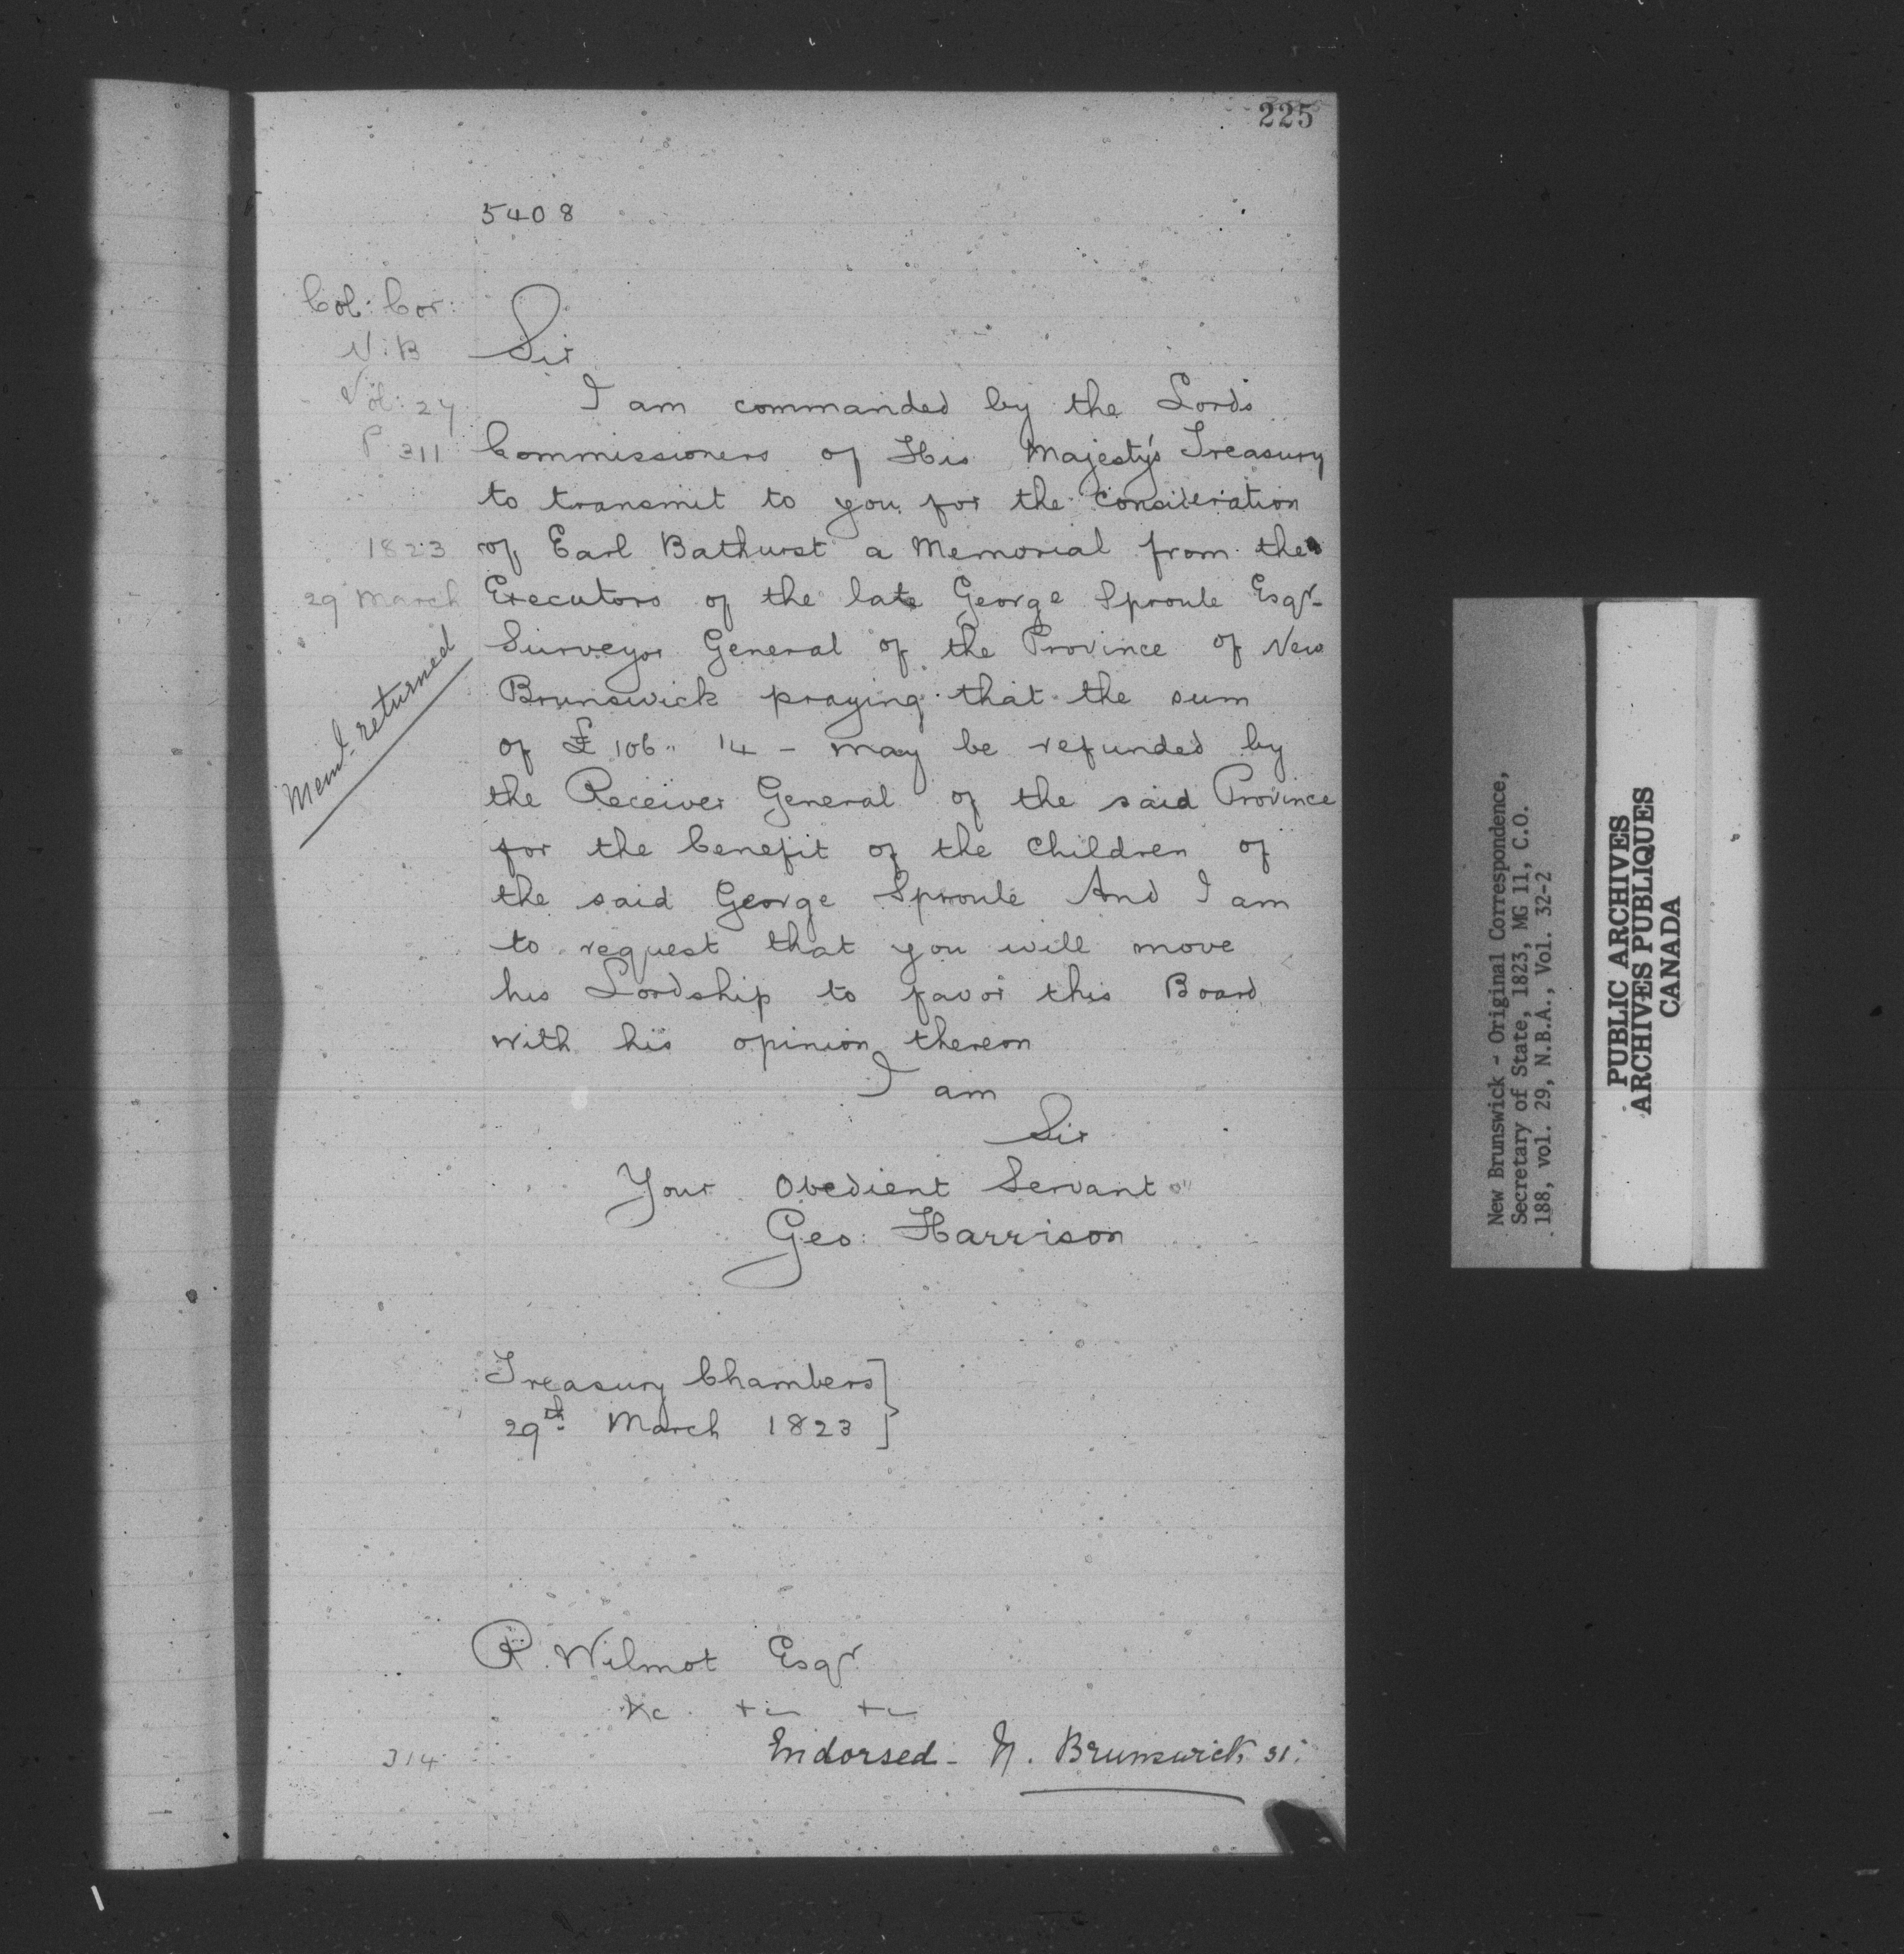 225
5408
Col: Cor:
N: B
Vol: 27
P 311
1823
29 March
Meml. returned
Sir
I am commanded by the Lords
Commissioners of His Majesty's Treasury
to transmit to you for the Consideration
of Earl Bathurst a Memorial from the
Executors of the late George Sproule Esqr.
Surveyor General of the Province of New
Brunswick praying that the sum
of £106" 14 - may be refunded by
the Receiver General of the said Province
for the benefit of the Children of
the said George Sproule And I am
to request that you will move
his Lordship to favor this Board
with his opinion thereon
I am
Sir
Your Obedient Servant
Geo: Harrison
Treasury Chambers
29th March 1823
R. Wilmot Esqr.
&c +c +c
Endorsed - N. Brunswick
314
New Brunswick - Original Correspondence,
Secretary of State, 1823, MG 11, C.O.
188, vol. 29, N.B.A., Vol. 32-2
PUBLIC ARCHIVES
ARCHIVES PUBLIQUES
CANADA